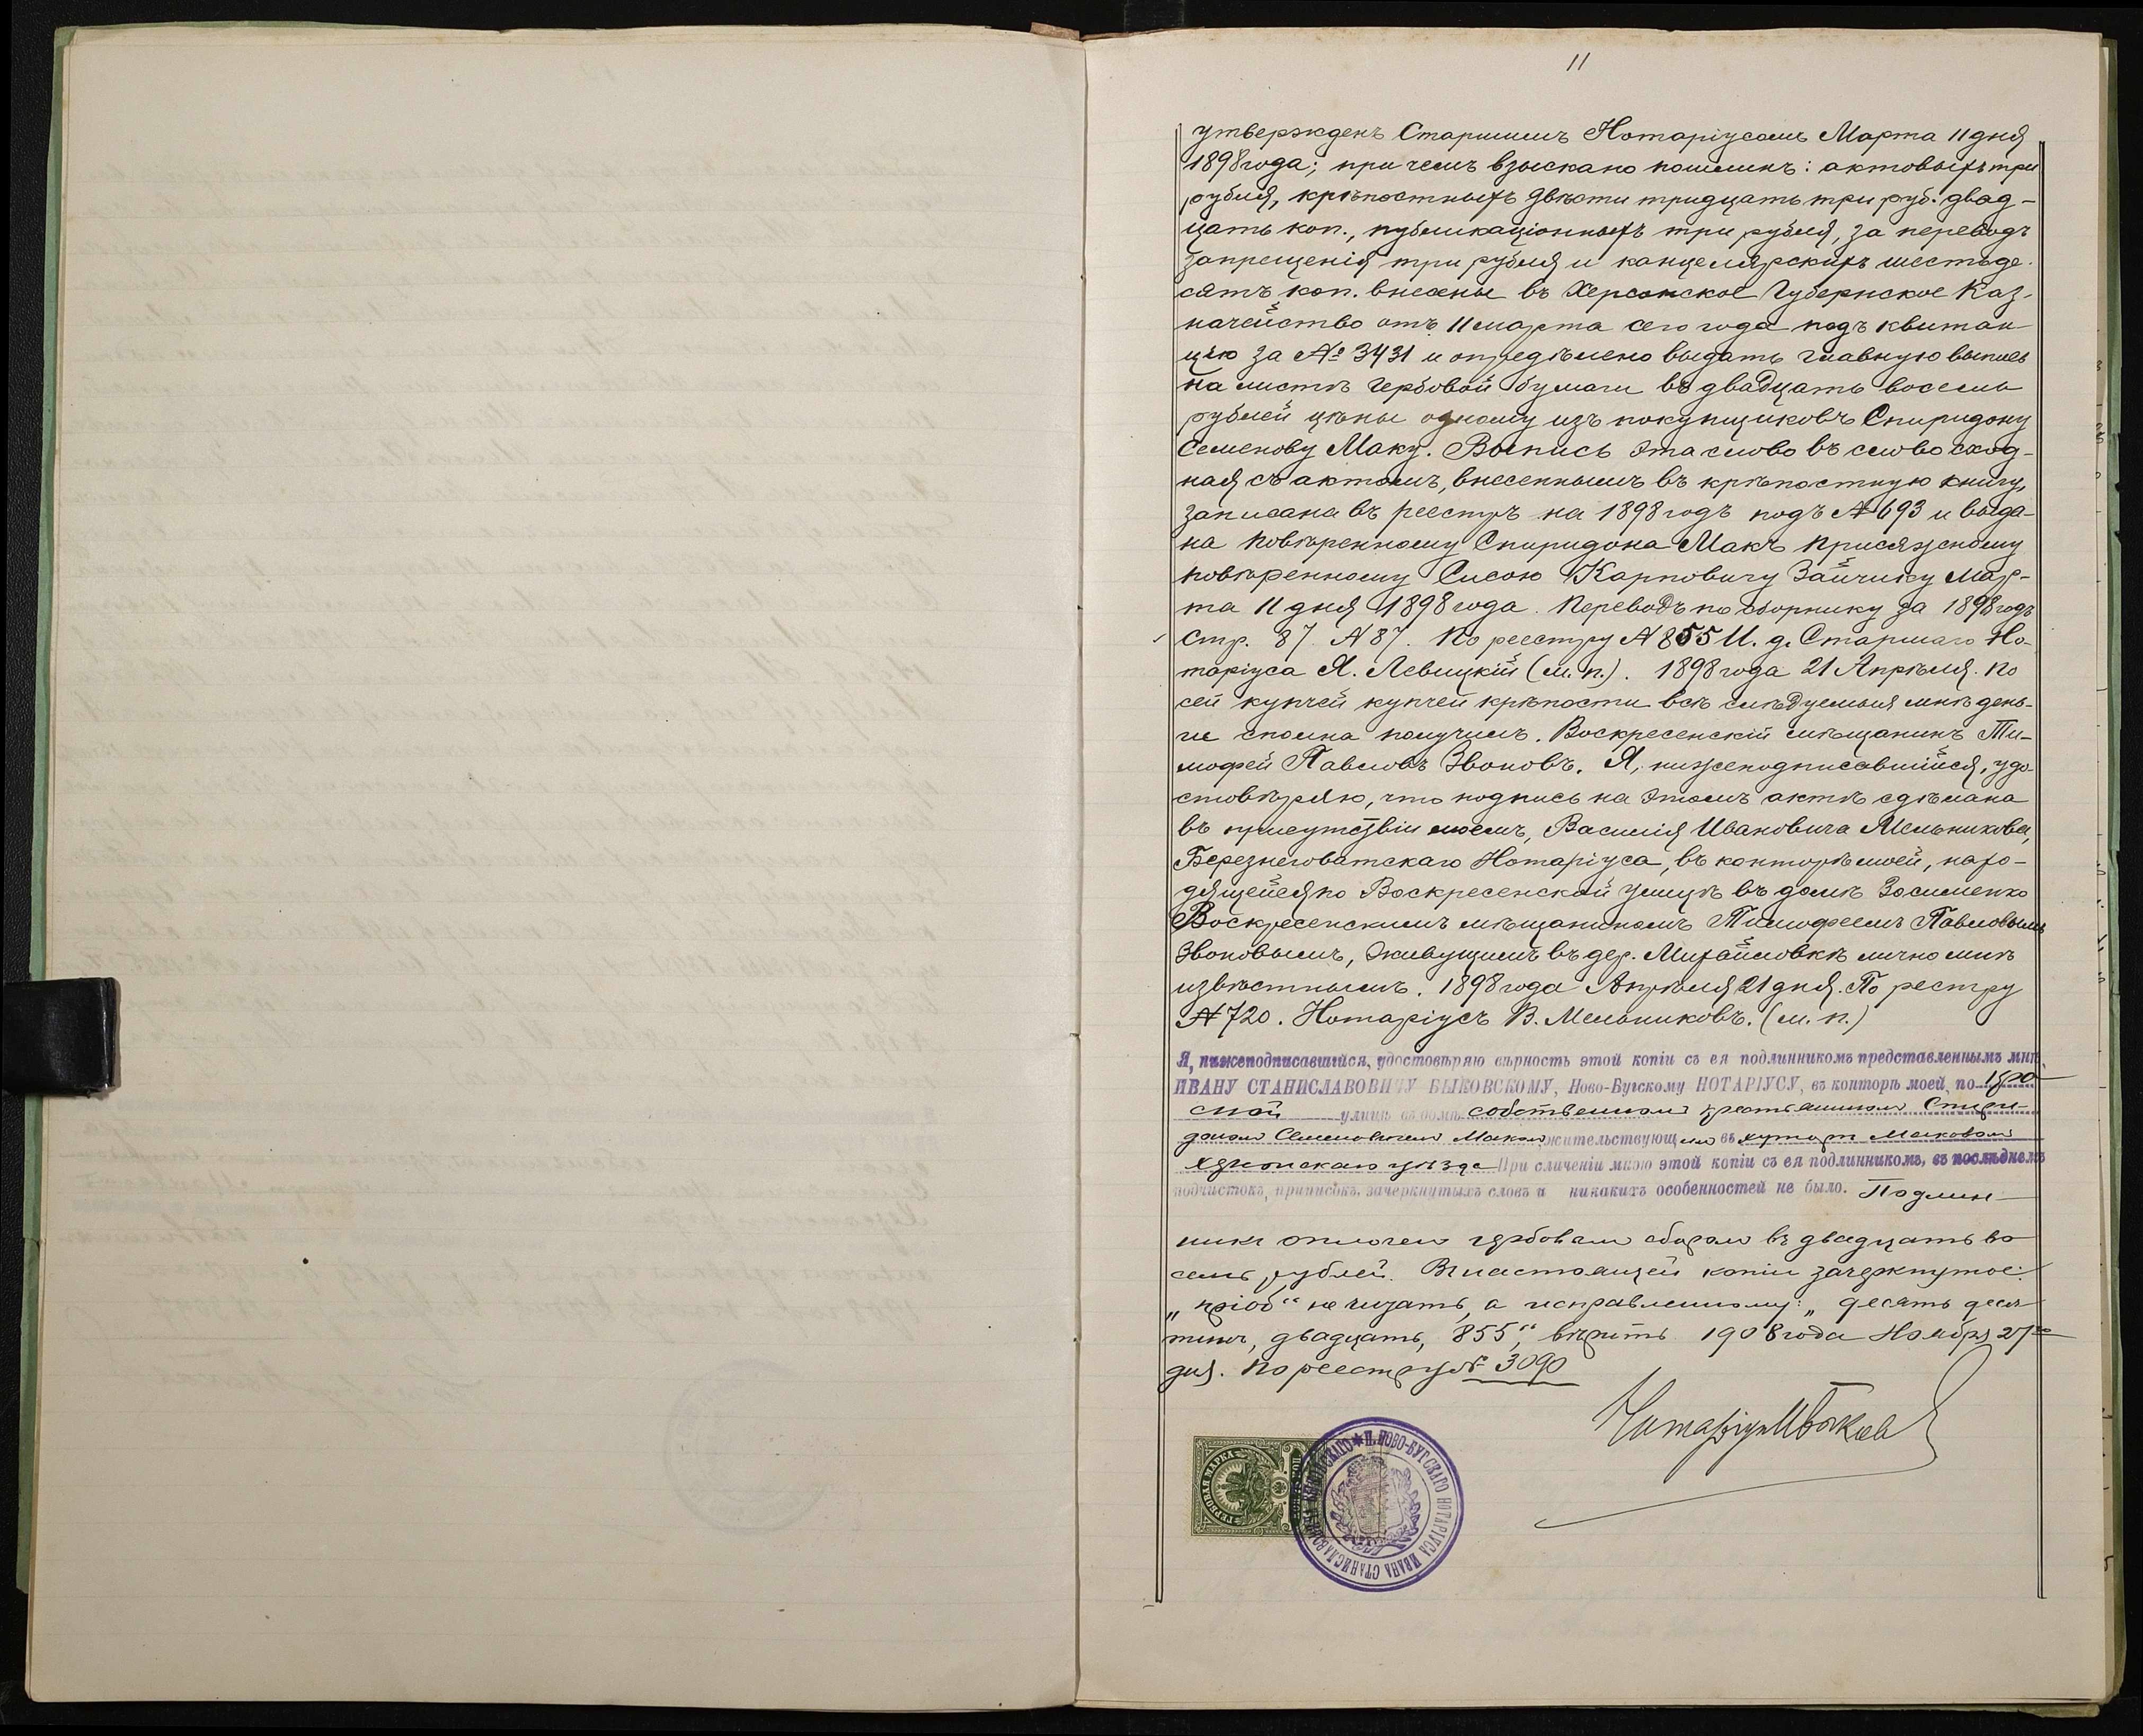 11
утвержденъ Старшимъ Нотаріусомъ Марта 11 дня
1898 года; при чемъ взыскано пошлинъ: актовыхъ три
рубля, крѣпостныхъ двѣсти тридцать три руб. двад-
цать коп., публикаціонныхъ три рубля, за переводъ
запрещенія три рубля и канцелярскихъ шестьде-
сятъ коп. внесены въ Херсонское Губернское Каз-
начейство отъ 11 марта сего года подъ квитан-
цію за № 3431 и опредѣлено выдать главную выпись
на листѣ гербовой бумаги въ двадцать восемь
рублей цѣны одному изъ покупщиковъ Спиридону
Семенову Маку. Выпись эта слово въ слово сход-
ная съ актомъ, внесеннымъ въ крѣпостную книгу,
записана въ реестръ на 1898 годъ подъ № 693 и выда-
на повѣренному Спиридона Макъ присяжному
повѣренному Сисою Карповичу Зайчику Мар-
та 11 дня 1898 года. Переводъ по сборнику за 1898 годъ
стр. 87 № 87. По реестру № 855 И. д. Старшаго Но-
таріуса Я. Левицкій (м. п.). 1898 года 21 Апрѣля. По
сей купчей купчей крѣпости всѣ слѣдуемыя мнѣ день-
ги сполна получилъ. Воскресенскій мѣщанинъ Ти-
мофей Павловъ Звоновъ. Я, нижеподписавшійся, удо-
стовѣряю, что подпись на этомъ актѣ сдѣлана
въ присутствіи моемъ, Василія Ивановича Мельникова,
Березнеговатскаго Нотаріуса, въ конторѣ моей, нахо-
дящейся по Воскресенской улицѣ въ домѣ Зосименко
Воскресенскимъ мѣщаниномъ Тимофеемъ Павловымъ
Звоновымъ, живущимъ въ дер. Михайловкѣ лично мнѣ
извѣстнымъ. 1898 года Апрѣля 21 дня. По рестру
№ 720. Нотаріусъ В. Мельниковъ. (м. п.)
Я, нижеподписавшійся, удостовѣряю вѣрность этой копіи съ ея подлинникомъ представленнымъ мнѣ,
ИВАНУ СТАНИСЛАВОВИЧУ БЫКОВСКОМУ, Ново-Бугскому НОТАРІУСУ, въ конторѣ моей, по
улицѣ въ домѣ собственномъ крестьяниномъ Спири-
дономъ Семеновичемъ Макомъ жительствующимъ въ хуторѣ Маковомъ
Херсонскаго уѣзда При сличеніи мною этой копіи съ ея подлинникомъ, въ послѣднемъ
подчистокъ, приписокъ, зачеркнутыхъ словъ и никакихъ особенностей не было. Подлин-
никъ оплоченъ гербовымъ сборомъ въ двадцать во
семь рублей. Въ настоящей копіи зачеркнутое:
„пріоб“ не читать, а исправленному: „десять деся-
тинъ, двадцать, 855“, вѣрить 1908 года Ноября 27го
дня. По реестру № 3090
Нотаріусъ ИБыков
ГЕРБОВАЯ МАРКА
П. НОВО-БУГСКАГО НОТАРІУСА ИВАНА СТАНИСЛАВОВИЧА БЫКОВСКАГО